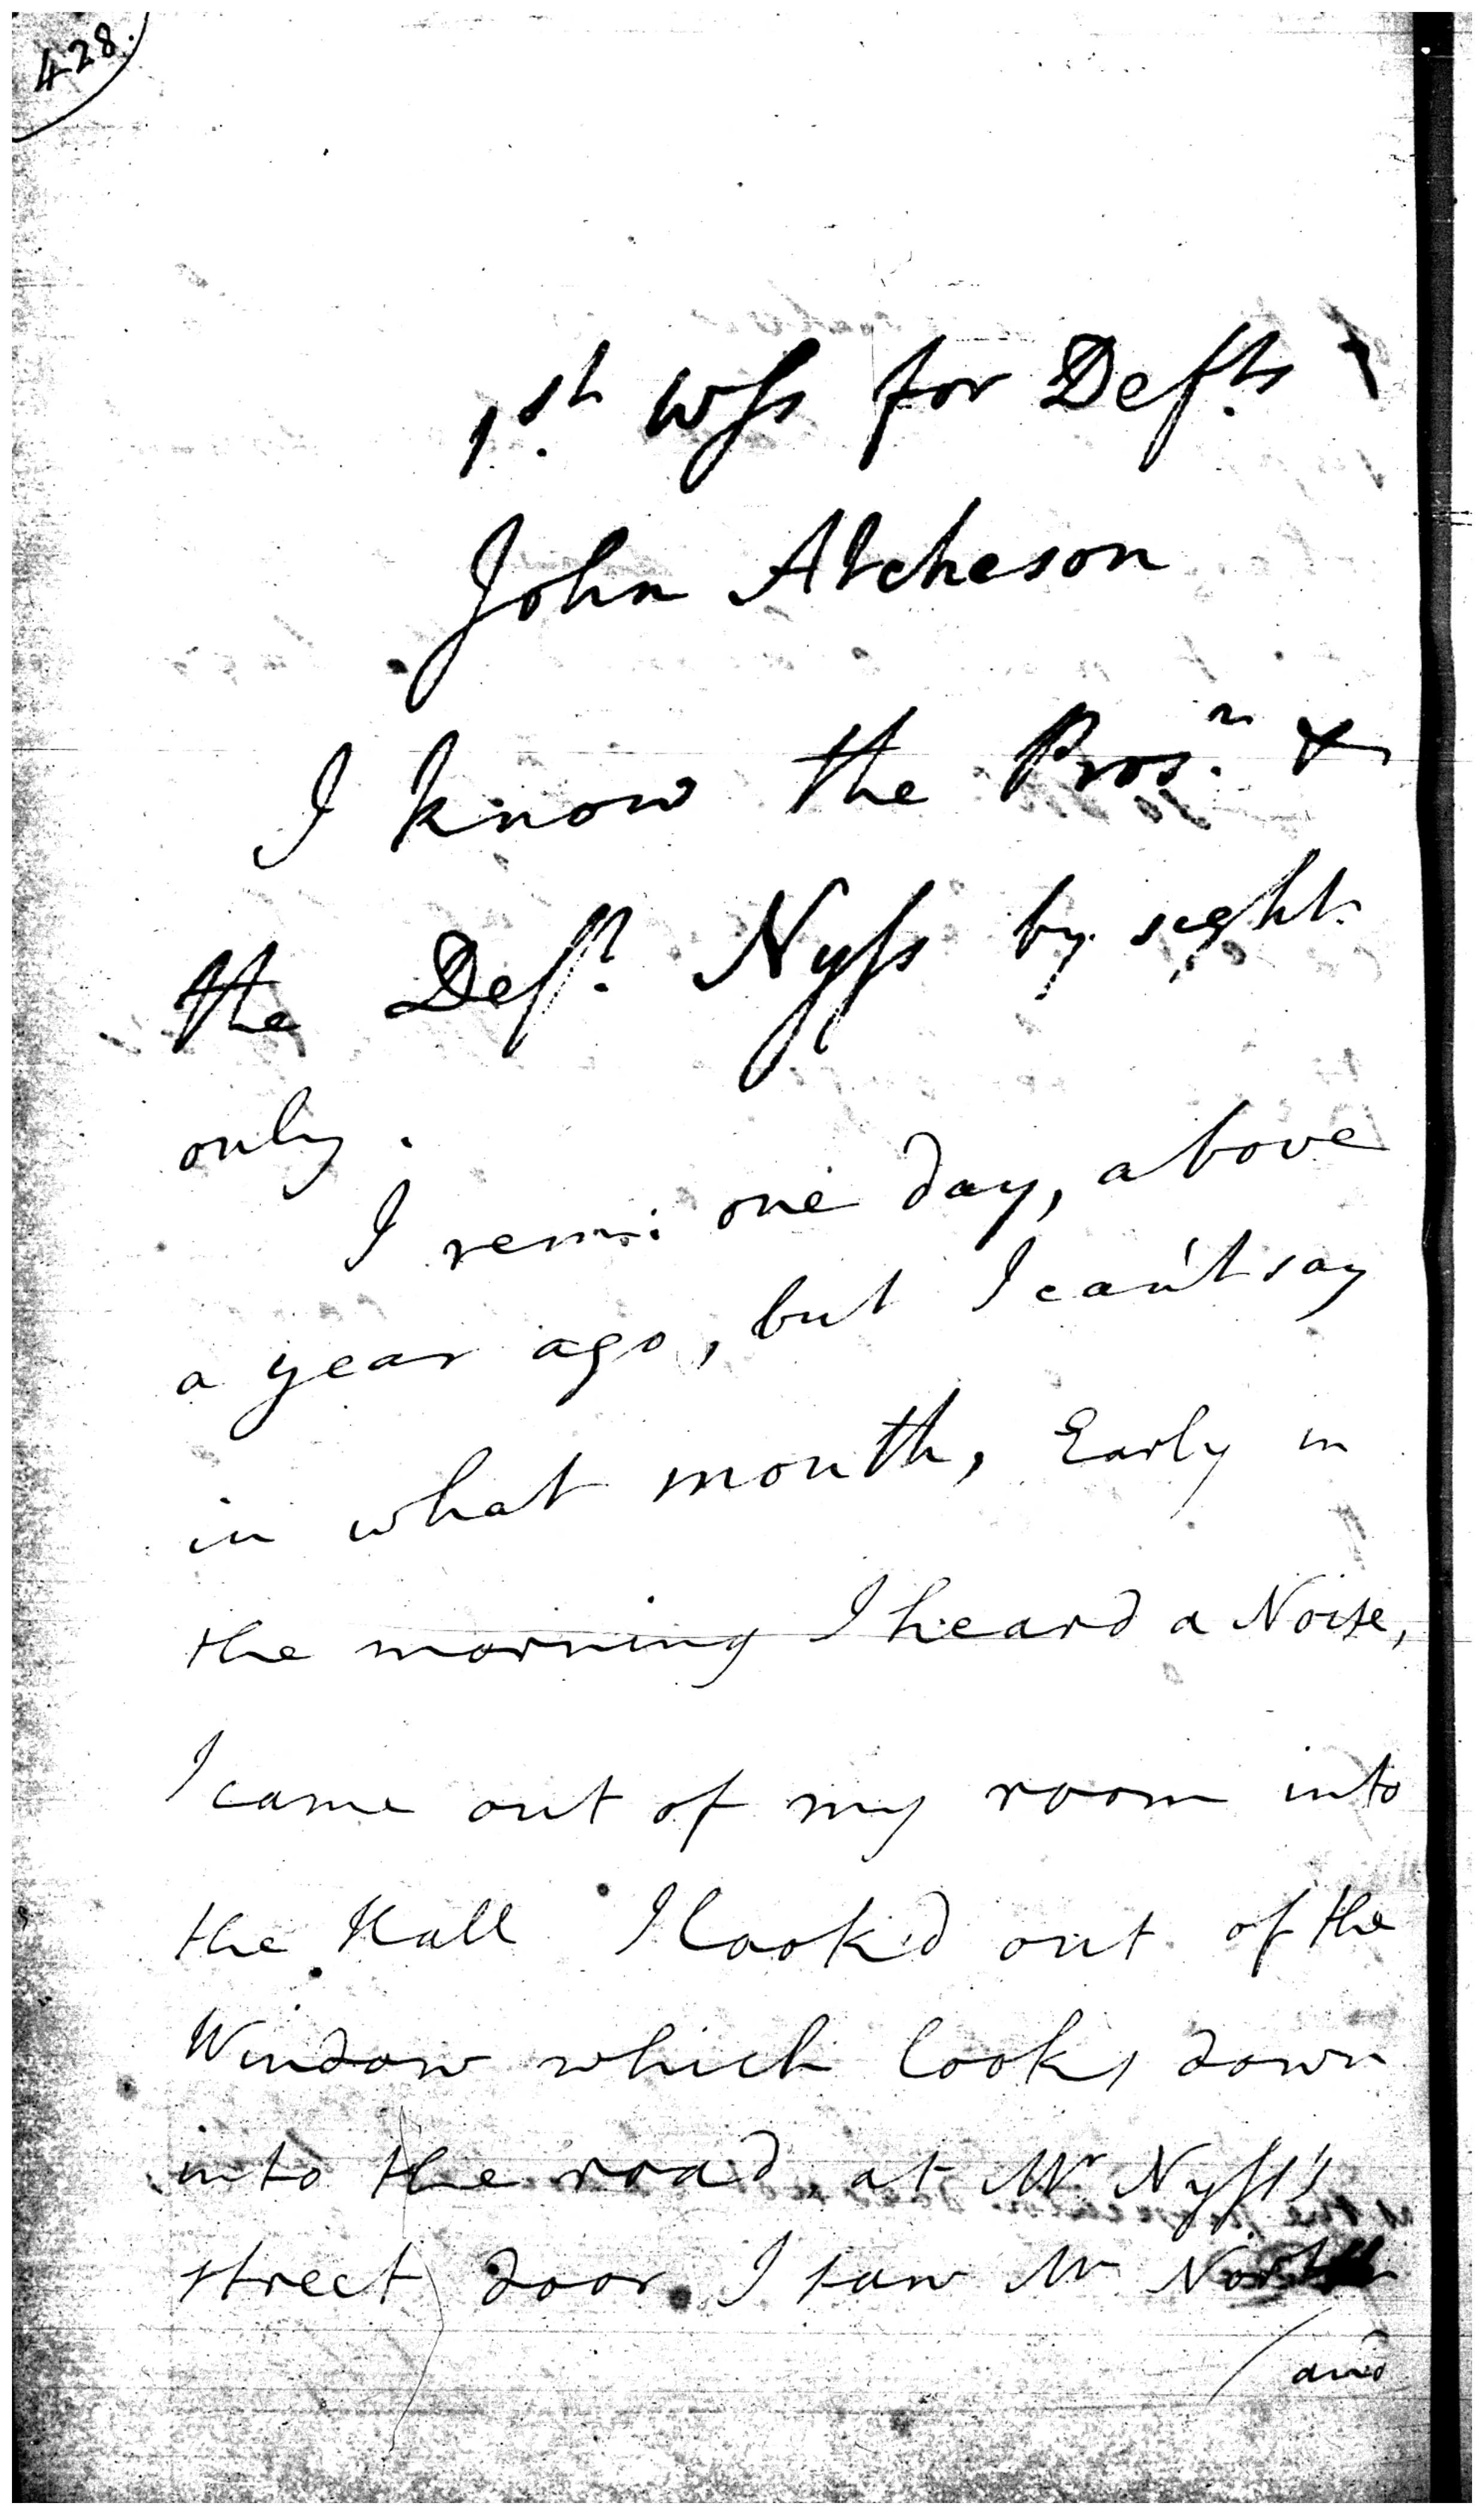 428.
1st. Wss for Defts
John Atcheson
I know the Prosn. &
the Deft. Nyss by sight
only.
I rem: one day, above
a year ago, but I can't say
in what month, Early in
the morning I heard a Noise,
I came out of my room into
the Hall I look'd out of the
Window which looks down
into the road, at Mr Nyss's
street door. I saw Mr North
/and